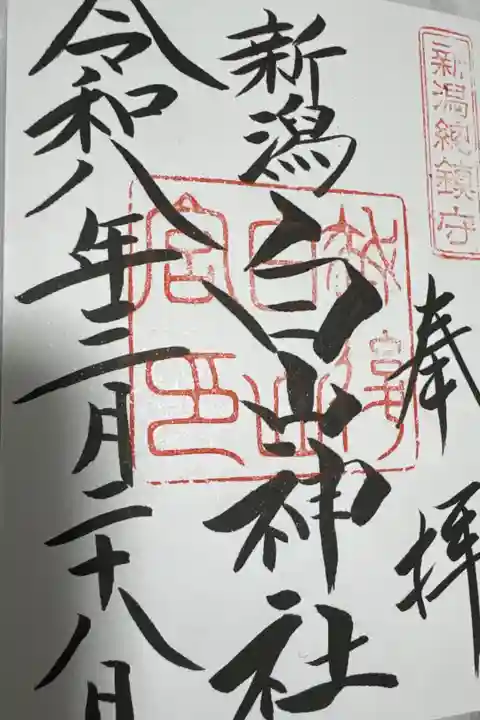 新潟總鎮守
奉拝
新潟白山神社
白山
宮印
令和八年三月二十八日